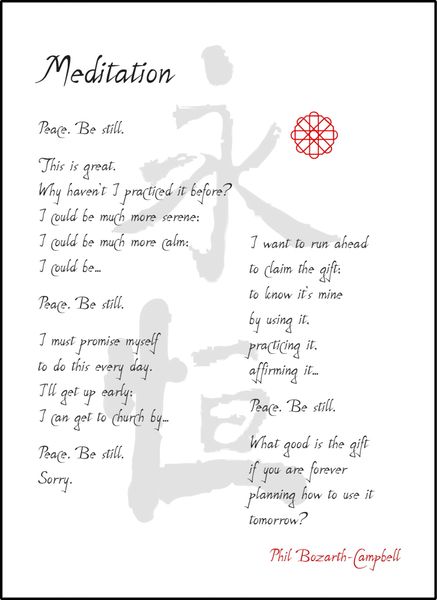 Meditation
Peace. Be still.
This is great.
Why haven't I practiced it before?
I could be much more serene;
I could be much more calm;
I could be...
Peace. Be still.
I must promise myself
to do this every day.
I'll get up early;
I can get to church by...
Peace. Be still.
Sorry.
I want to run ahead
to claim the gift;
to know it's mine
by using it,
practicing it,
affirming it...
Peace. Be still.
What good is the gift
if you are forever
planning how to use it
tomorrow?
Phil Bozarth-Campbell
永恒